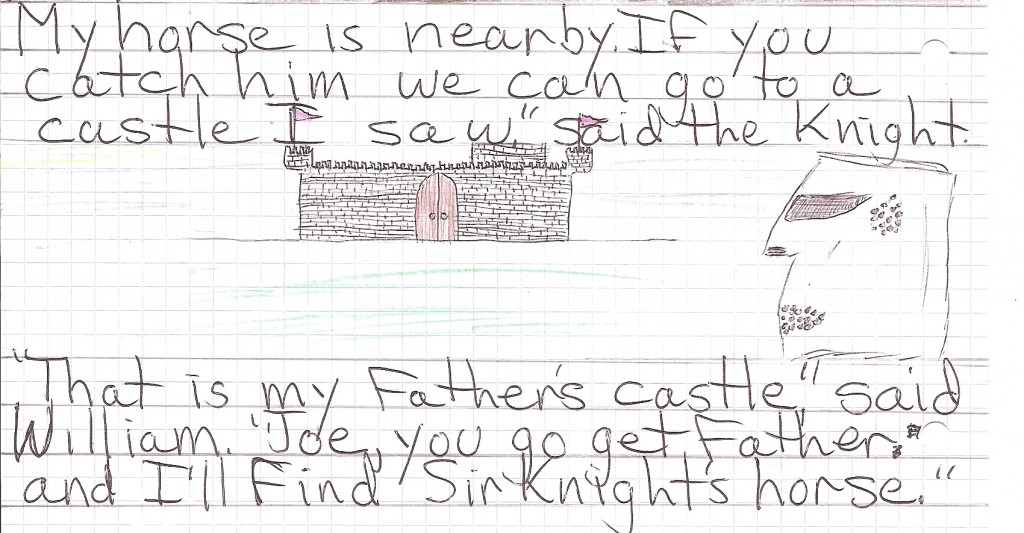 My horse is nearby. If you
catch him we can go to a
castle I saw," said the Knight.
"That is my Father's castle" said
William. "Joe, you go get Father,
and I'll Find Sir Knight's horse."